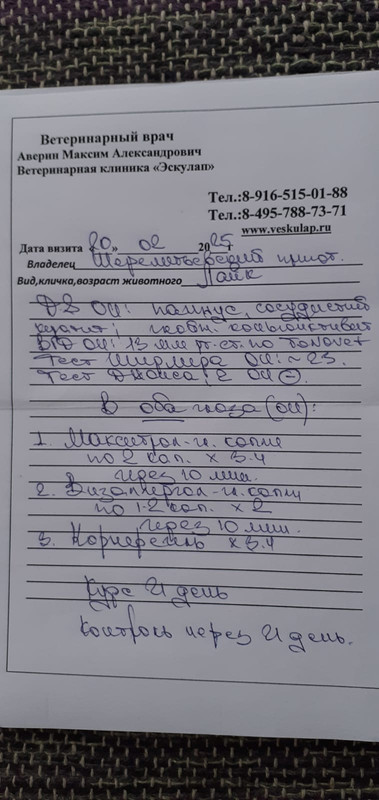 Ветеринарный врач
Аверин Максим Александрович
Ветеринарная клиника «Эскулап»
Тел.:8-916-515-01-88
Тел.:8-495-788-73-71
www.veskulap.ru
Дата визита 20» 02 2025г
Владелец Шереметьевский приют.
Вид,кличка,возраст животного Лаик
ДЗ OU: паннус, сосудистый
кератит; конъюнктивит
ВГД OU: 13 мм рт. ст. по Tonovet
Тест Ширмера OU: ~ 23.
Тест Джонса: 2 OU ⊖.
В оба глаза (OU):
1. Макситрол-гл. капли
по 2 кап. x 3.4
через 10 мин.
2. Визаллергол-гл. капли
по 1-2 кап. x 2
через 10 мин.
3. Корнерегель x 3.4
Курс 21 день
Контроль через 21 день.